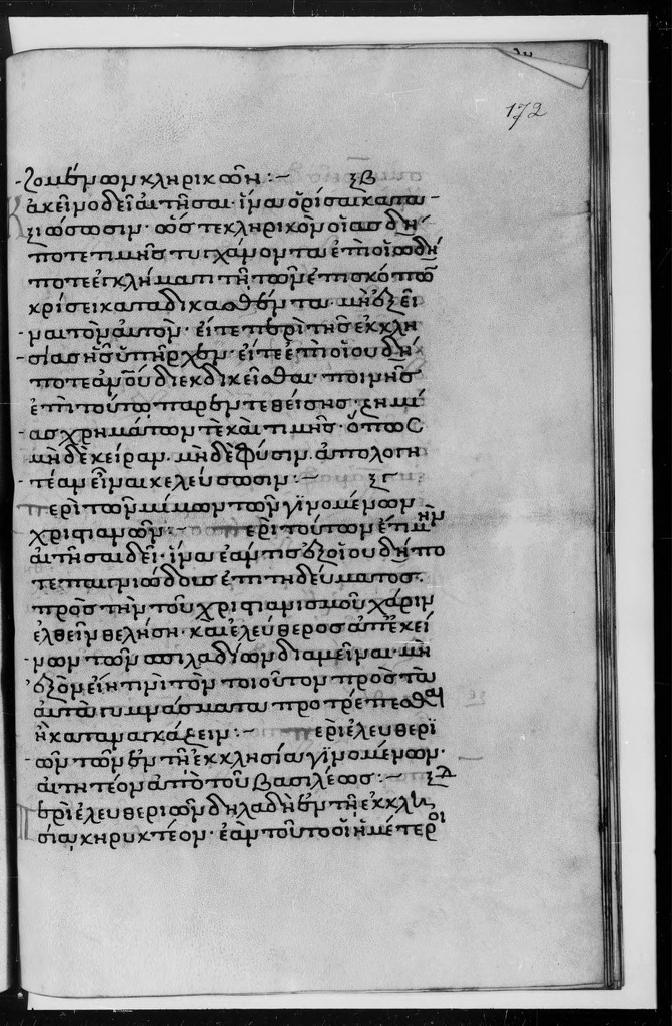 172
ζομένων κληρικῶν :– ξβ
Κἀκεῖνο δεῖ αἰτῆσαι· ἵνα ὁρίσαι κατα
ξιώσωσιν· ὥστε κληρικὸν οἵας δή
ποτε τιμῆς τυγχάνοντα ἐπὶ οἵῳ δή
ποτε ἐγκλήματι τῇ τῶν ἐπισκόπων
κρίσει καταδικασθέντα· μὴ ἐξεῖ
ναι τὸν αὐτὸν· εἴτε περὶ τῆς ἐκκλη
σίας ἧς ὑπῆρχεν· εἴτε ἐπὶ οἵου δή
ποτε ἀνοῦ διεκδικεῖσθαι· ποινῆς
ἐπὶ τούτῳ παρεντεθείσης· ζημί
ας χρημάτων τὲ καὶ τιμῆς· ὅπως
μηδὲ κεῖραν· μηδὲ φύσιν ἀπολογη
τέαν εἶναι κελεύσωσιν :– ξγ
Περὶ τῶν μίμων τῶν γινομένων
χριστιανῶν :– Περὶ τούτων ἔτι μὴν
αἰτῆσαι δεῖ· ἵνα ἐάν τις ἐξ οἵου δήπο
τε παιγνιώδους ἐπιτηδεύματος·
πρὸς τὴν τοῦ χριστιανισμοῦ χάριν
ἐλθεῖν θελήση· καὶ ἐλεύθερος ἀπ' ἐκεί
νων τῶν σπιλαδίων διαμεῖναι· μὴ
ἐξὸν εἴη τινὶ τὸν τοιοῦτον πρὸς τὰ
αὐτὰ γυμνάσματα προτρέπεσθαι
ἢ καταναγκάζειν :– Περὶ ἐλευθερι
ῶν τῶν ἐν τῇ ἐκκλησίᾳ γινομένων·
αἰτητέον ἀπὸ τοῦ βασιλέως :– ξδ
Περὶ ἐλευθεριῶν δηλαδὴ ἐν τῇ ἐκκλη
σίᾳ κηρυκτέον· ἐὰν τοῦτο οἱ ἡμέτεροι